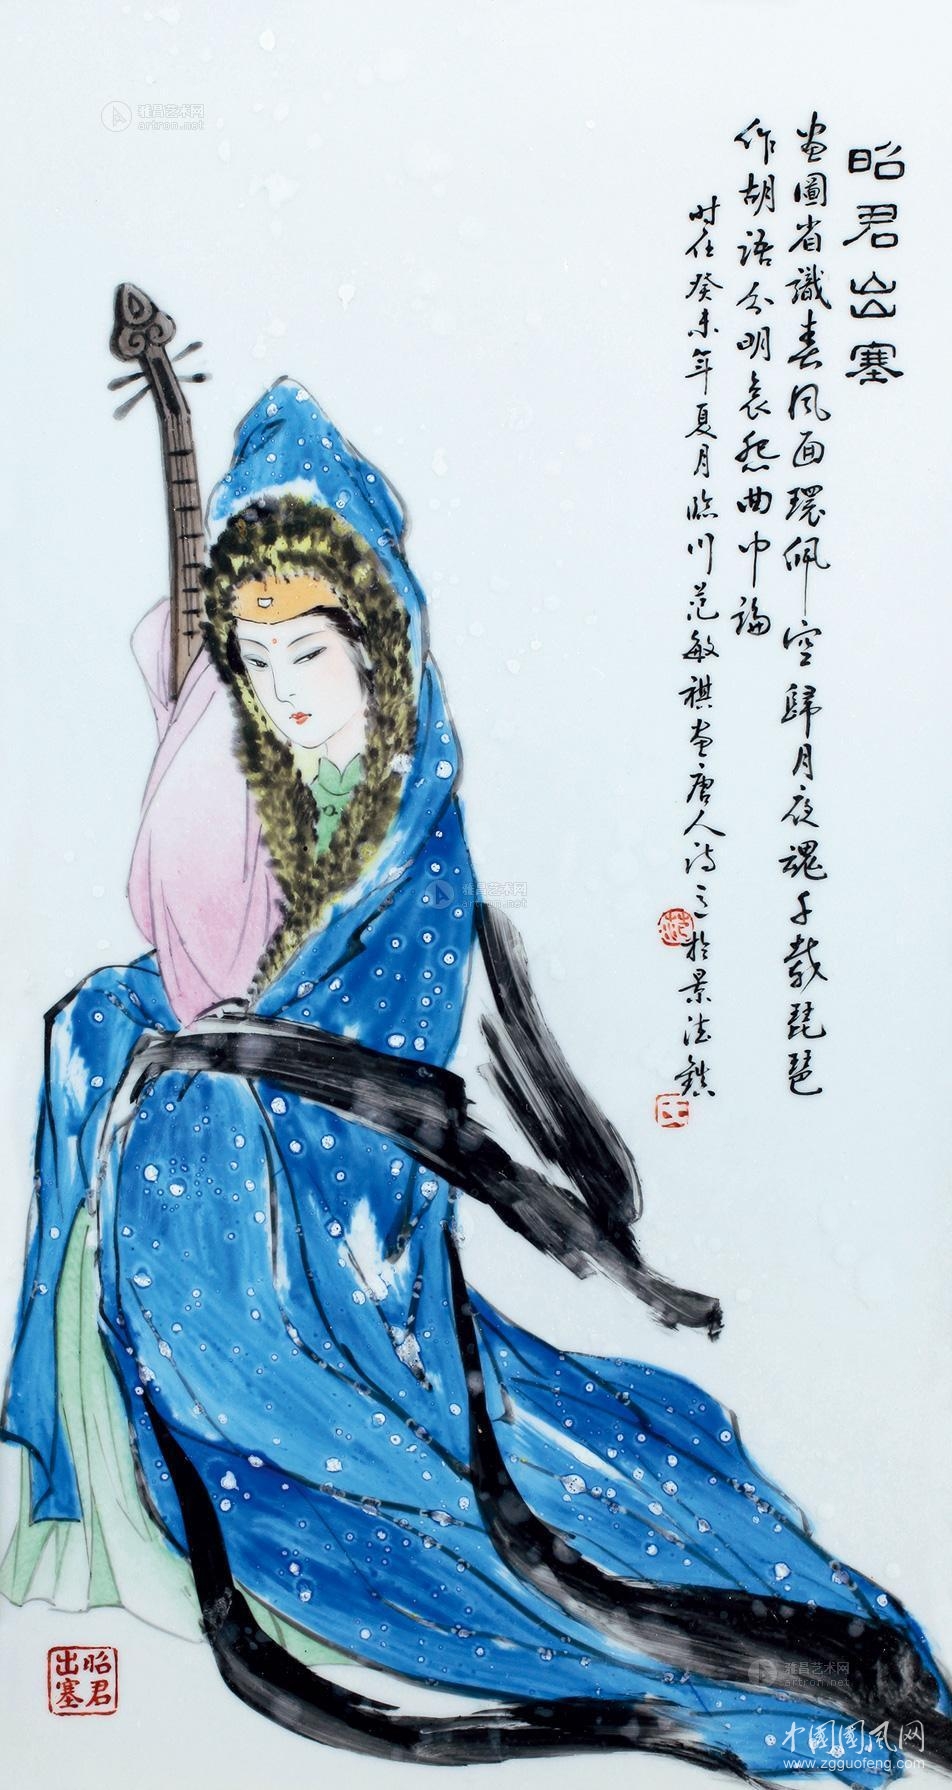 昭君出塞
画圖省識春风面環佩空歸月夜魂千載琵琶
作胡语分明哀怨曲中論
时在癸未年夏月臨川范敏祺画唐人诗意於景德鎮
昭君
出塞
雅昌艺术网
artron.net
雅昌艺术网
artron.net
雅昌艺术网
artron.net
中国國风网
www.zgguofeng.com